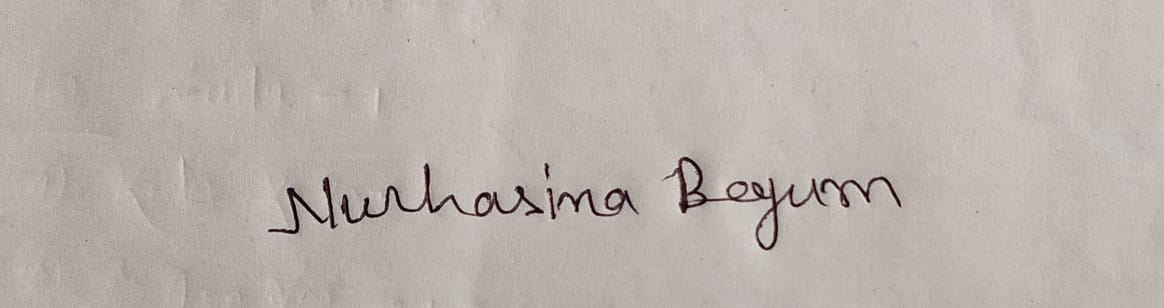 Nurhasina Begum